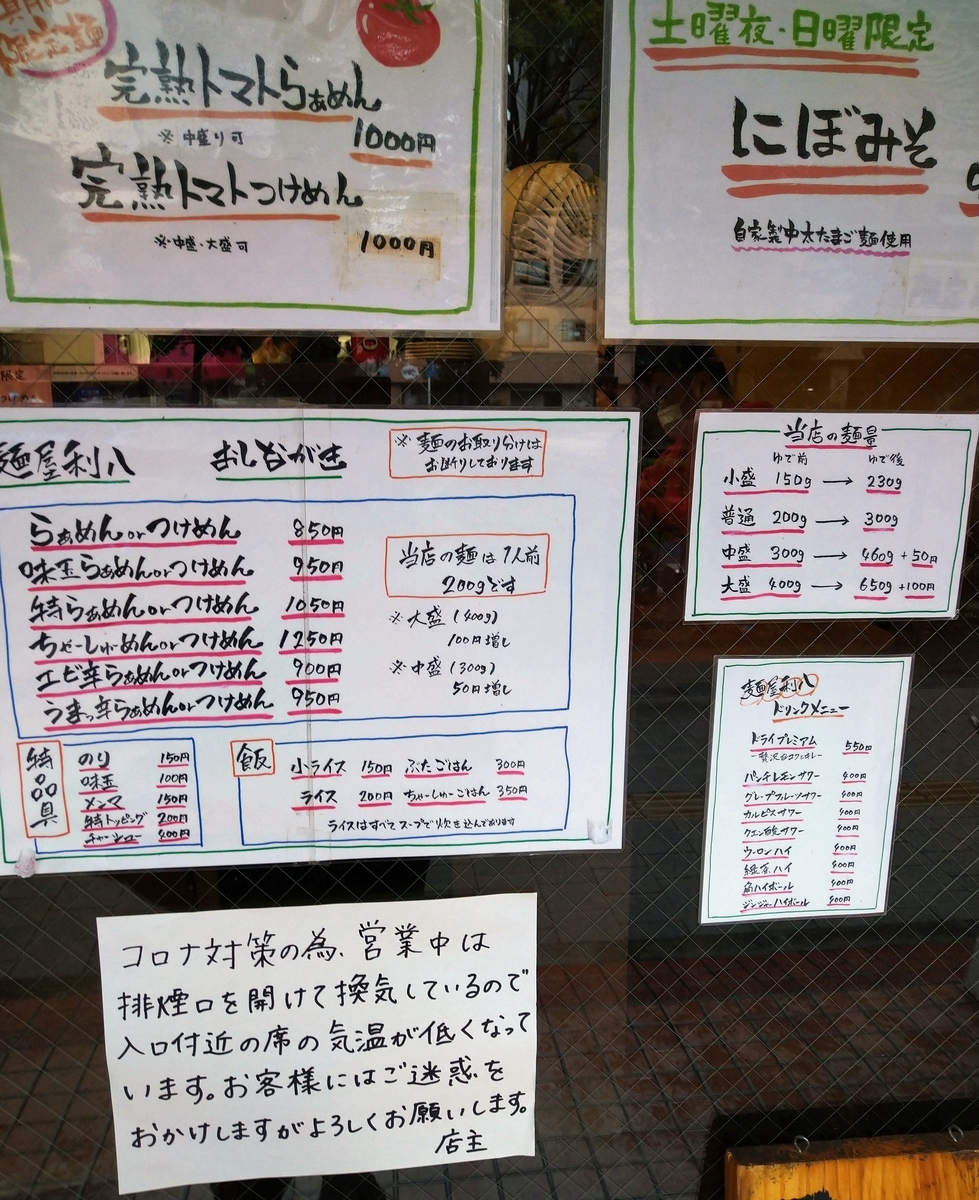 限定麺
完熟トマトらぁめん
※中盛り可
1000円
完熟トマトつけめん
※中盛・大盛可
1000円
土曜夜・日曜限定
にぼみそ
自家製中太たまご麺使用
限定
麺屋利八
おしながき
※麺のお取り分けは
お断りしております
らぁめんorつけめん 850円
味玉らぁめんorつけめん 950円
特らぁめんorつけめん 1050円
ちゃーしゅーめんorつけめん 1250円
エビ辛らぁめんorつけめん 900円
うまっ辛らぁめんorつけめん 950円
当店の麺は1人前
200gです
※大盛(400g)
100円増し
※中盛(300g)
50円増し
特品具
のり 150円
味玉 100円
メンマ 150円
特トッピング 200円
チャーシュー 400円
飯
小ライス 150円 ぶたごはん 300円
ライス 200円 ちゃーしゅーごはん 350円
ライスはすべてスープで炊き込んであります
当店の麺量
ゆで前 ゆで後
小盛 150g → 230g
普通 200g → 300g
中盛 300g → 460g +50円
大盛 400g → 650g +100円
麺屋利八
ドリンクメニュー
ドライプレミアム 550円
パンチレモンサワー 400円
グレープフルーツサワー 400円
カルピスサワー 400円
クエン酸サワー 400円
ウーロンハイ 400円
緑茶ハイ 400円
角ハイボール 400円
ジンジャーハイボール 400円
コロナ対策の為、営業中は
排煙口を開けて換気しているので
入口付近の席の気温が低くなって
います。お客様にはご迷惑を
おかけしますがよろしくお願いします。
店主